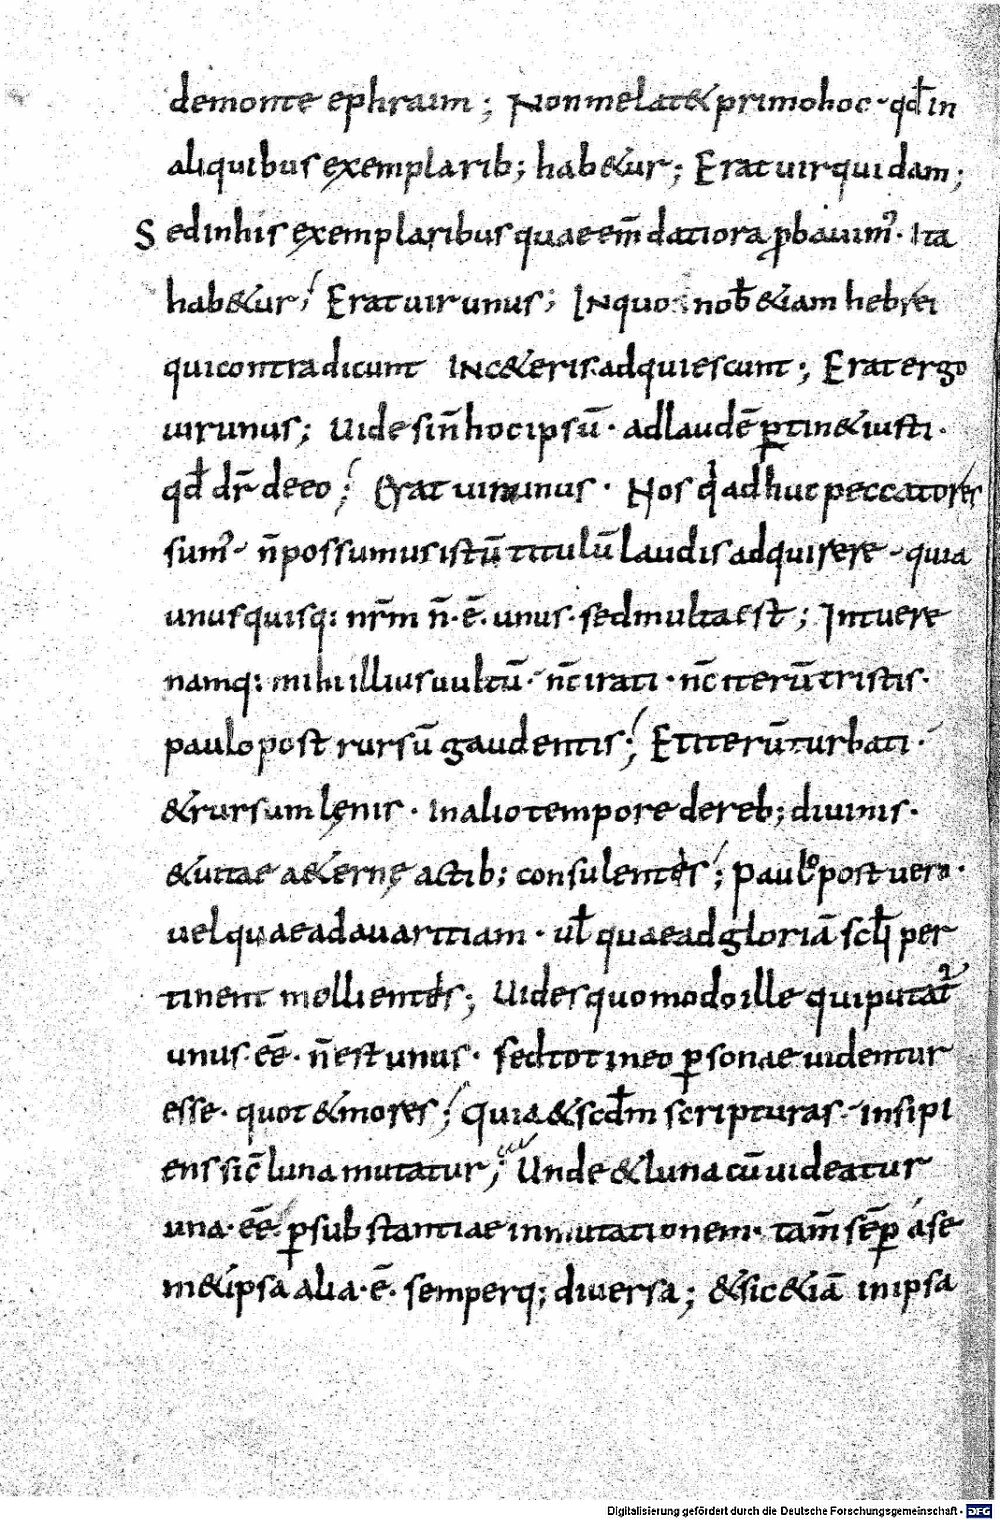 demonte ephraim; Nonmelat& primohoc · qd̄ in
aliquibus exemplarib; hab&ur; Erat uir quidam;
Sed inhis exemplaribus quae em̄datiora p̄bauim᾽· Ita
hab&ur; Erat uir unus; INquo nob̄ &iam hebrei
qui contradicunt INc&eris adquiescunt; Erat ergo
uir unus; Uide sin̄ hoc ipsū · ad laudē ꝑtin& iusti·
qd̄ dr̄ deeo; Erat uir unus · Nos q̇ adhuc peccatores
sum᾽ · n̄ possumus istū titulū laudis adquirere · quia
unusquisq: nr̄m n̄·ē· unus· sed multa est; Intuere
namq: mihi illius uultū· nc̄ irati · nc̄ iterū tristis·
paulo post rursū gaudentis; Et iterū turbati ·
& rursum lęnis · In alio tempore de reb; diuinis·
& uitae a&ernę actib; consulentes; paulo post uero·
uel quae ad auaritiam · ul̄ quae ad gloriā scl̄i per
tinent mollientes; Uides quomodo ille qui putat᾽
unus eē· n̄ est unus · sed tot ineo ꝑsonae uidentur
esse· quot & mores; Quia & scd̄m scripturas· insipi
ens sic̄ luna mutatur; Unde & luna cū uideatur
una· eē· ꝑ substantiae inmutationem· tam̄ sēꝑ ase
m&ipsa alia·ē· semperq; diuersa; &sic &iā in ipsa
Digitalisierung gefördert durch die Deutsche Forschungsgemeinschaft - DFG